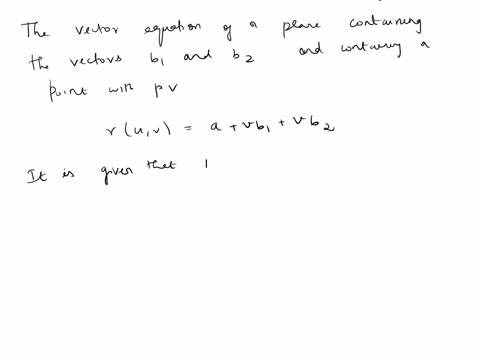 The vector equation of a plane containing
the vectors b1 and b2 and containing a
point with pv
r(u,v) = a + vb1 + vb2
It is given that